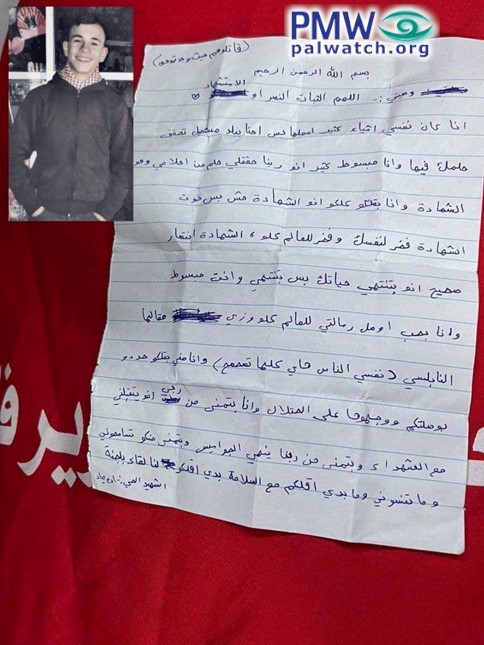 PMW
palwatch.org
(قاتلوهم حيث وجدتموهم)
بسم الله الرحمن الرحيم
وصيتي: اللهم الثبات النصر او الاستشهاد
انا كان نفسي اشياء كتير اعملها بس احنا ببلاد مستحيل تحقق
حلمك فيها وانا مبسوط كتير انو ربنا حققلي حلم من احلامي وهو
الشهادة وانا بقلكو كلكو انو الشهادة مش بس موت
الشهادة فخر لنفسك وفخر للعالم كلو، الشهادة انتصار
صحيح انو بتنتهي حياتك بس بتنتهي وانت مبسوط
وانا بحب اوصل رسالتي للعالم كلو وزي مقالها
النابلسي (نفسي الناس هاي كلها تصحصح) وانا مني بقلكو حددو
بوصلتكم ووجهوها على احتلال وانا بتمنى من ربي انو يتقبلني
مع الشهداء وبتمنى من ربنا ينهي الجواسيس وبتمنى منكو تسامحوني
وما تنسوني وما بدي اقلكم مع السلامة بدي اقلكم لنا لقاء بالجنة
الشهيد الحي: